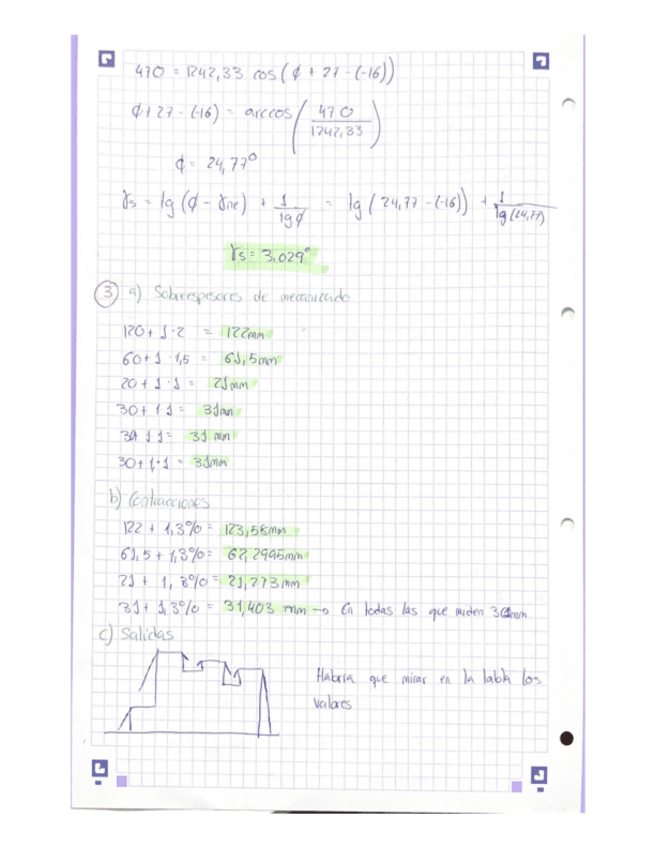 470 = 1242,33 cos (ϕ + 27 - (-16))
ϕ + 27 - (-16) = arccos (470 / 1242,33)
ϕ = 24,77°
γs = tg (ϕ - γne) + 1/tgϕ = tg (24,77 - (-16)) + 1/tg(24,77)
γs = 3,029°
3 a) Sobreespesores de mecanizado
120 + 1·2 = 122mm
60 + 1·1,5 = 61,5mm
20 + 1·1 = 21mm
30 + 1·1 = 31mm
30 + 1·1 = 31 mm
30 + 1·1 = 31mm
b) Contracciones
122 + 1,3% = 123,58mm
61,5 + 1,3% = 62,2995mm
21 + 1,3% = 21,273mm
31 + 1,3% = 31,403 mm → En todas las que miden 30mm
c) Salidas
Habría que mirar en la tabla los
valores